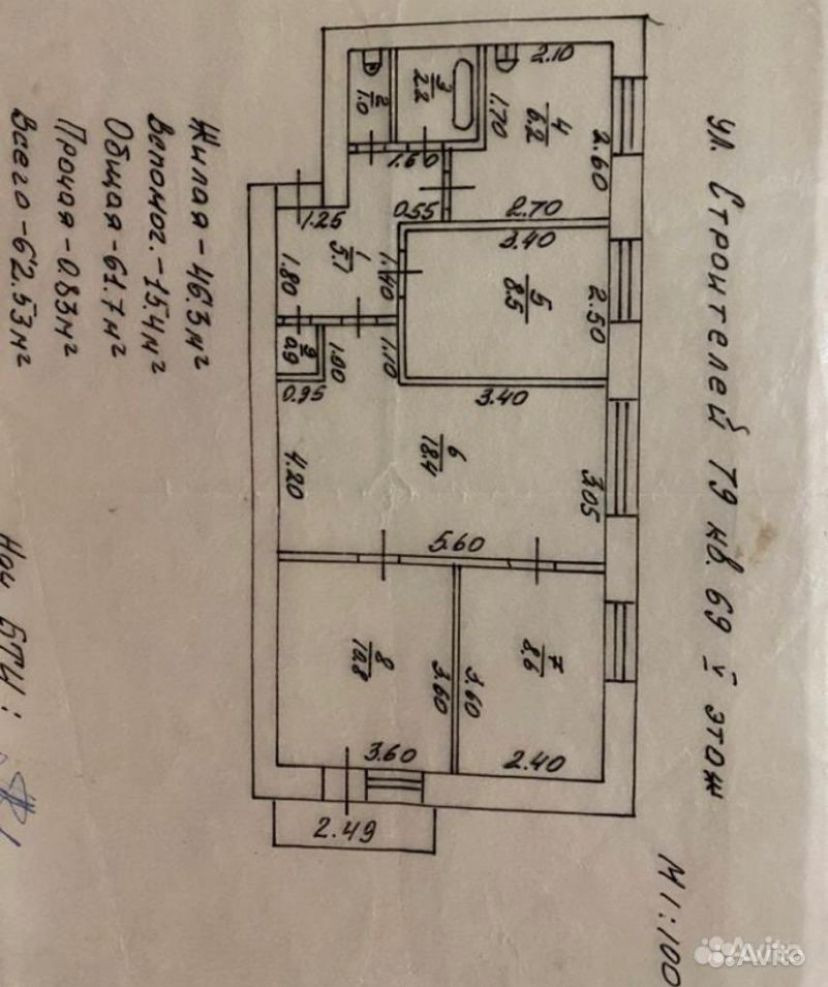 ул. Строителей 79 кв. 69 V этаж
М 1:100
2
1.0
3
2.2
2.10
1.70
4
6.2
2.60
1.60
0.55
2.70
1.25
1
5.7
1.80
1.40
3.40
5
8.5
2.50
9
0.9
1.00
1.10
0.95
3.40
6
18.4
4.20
3.05
5.60
8
10.8
3.60
3.60
7
8.6
3.60
2.40
2.49
Жилая - 46.3 м²
Вспомог. - 15.4 м²
Общая - 61.7 м²
Прочая - 0.83 м²
Всего - 62.53 м²
Нач БТИ:
Avito